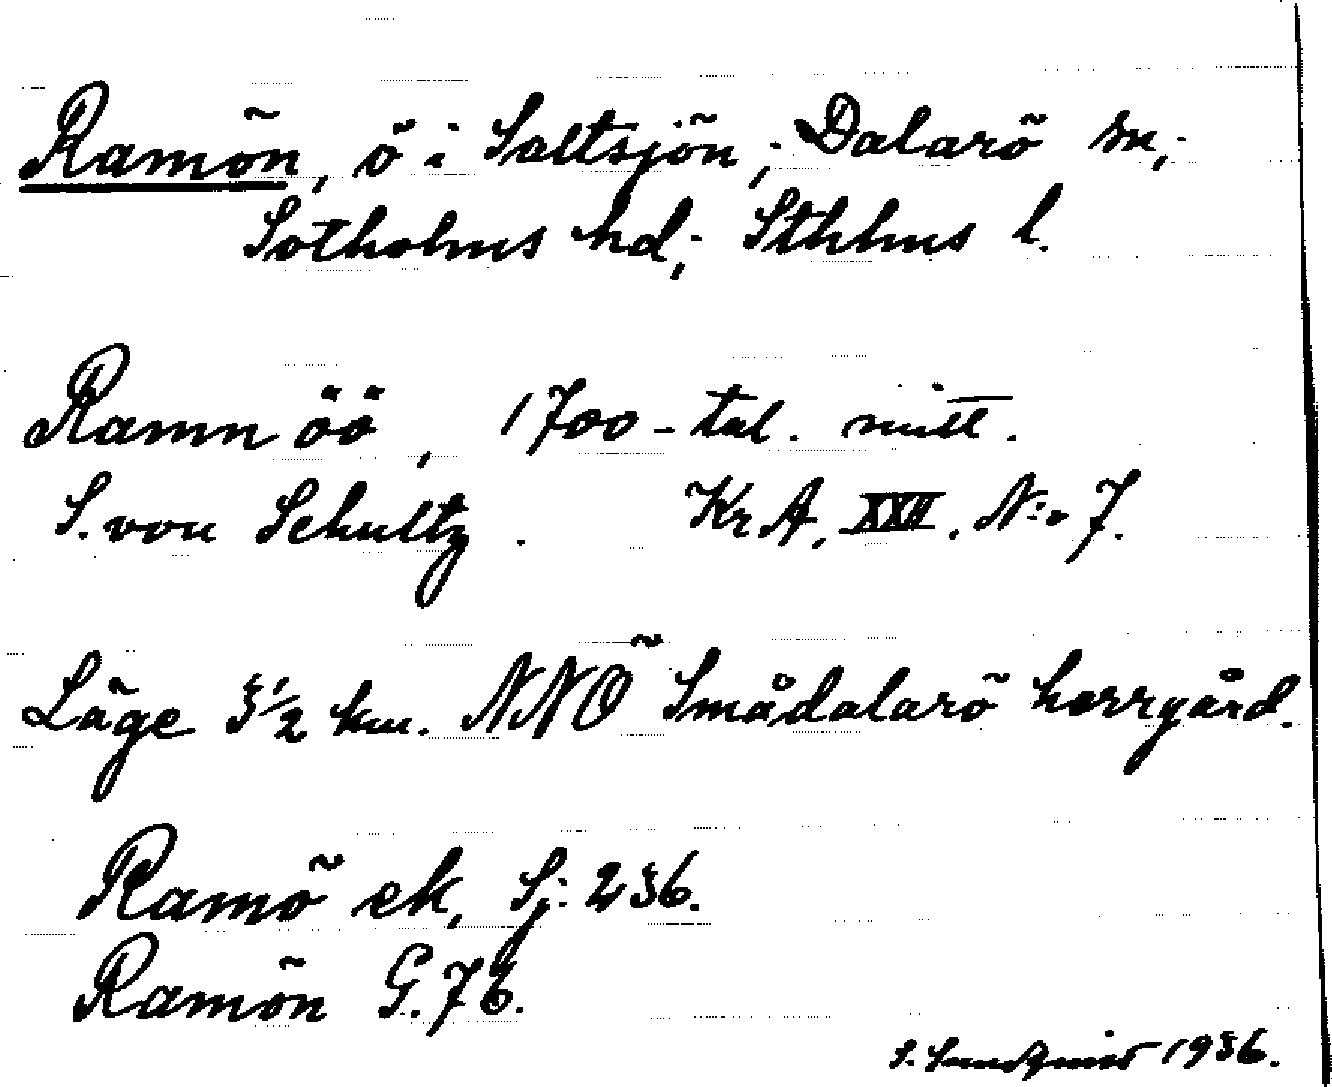 Ramön, ö i Saltsjön, Dalarö sn,
Sotholms hd, Sthlms l.
Ramn öö, 1700-tal. mitt.
S. von Schultz. Kr A. XXII. N:o 7.
Läge 3 1/2 km. NNO Smådalarö herrgård.
Ramö ek, Sj: 236.
Ramön G. 76.
S. Sundqvist 1936.